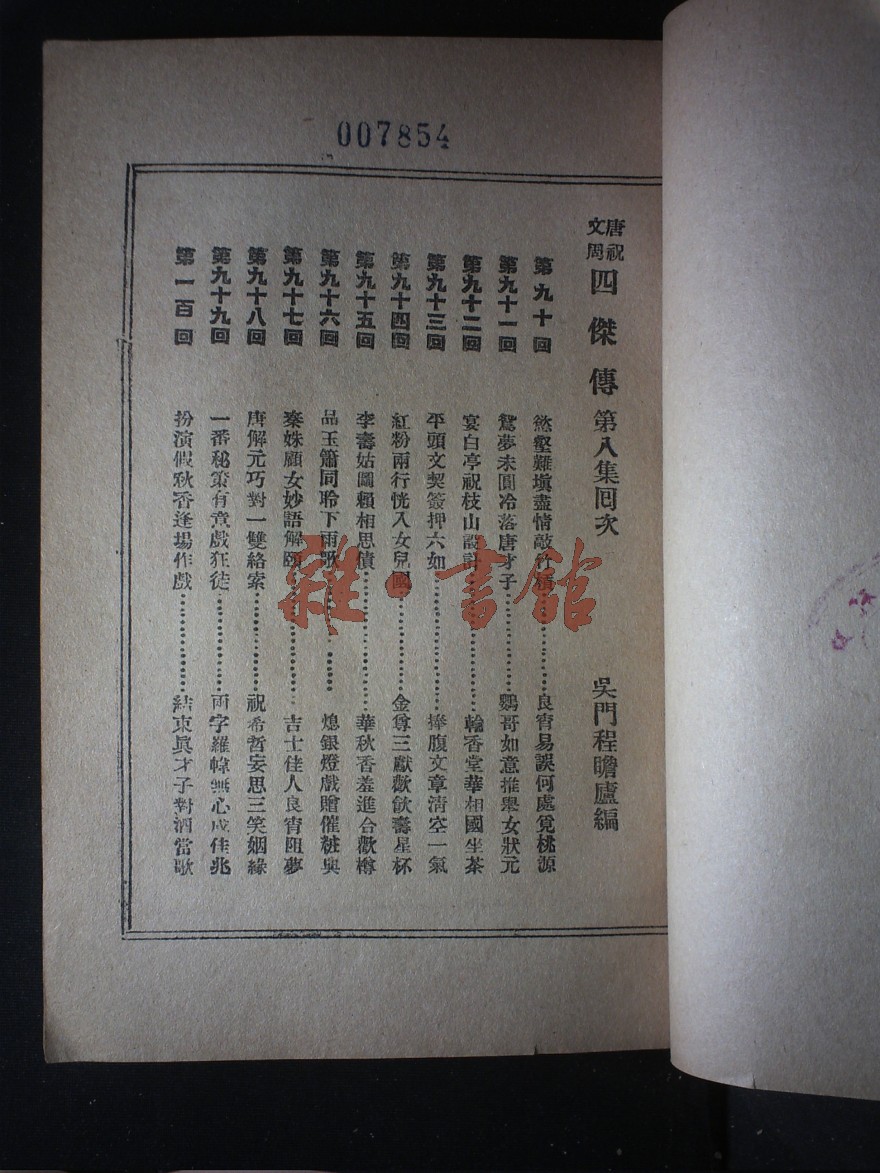 007854
唐祝文周四傑傳 第八集回次 吳門程瞻廬編
第九十回 慾壑難塡盡情敲竹槓 良宵易誤何處覓桃源
第九十一回 鴛夢未圓冷落唐才子 鸚哥如意推舉女狀元
第九十二回 宴白亭祝枝山設計 輪香堂華相國坐茶
第九十三回 平頭文契簽押六如 捧腹文章淸空一氣
第九十四回 紅粉兩行恍入女兒國 金尊三獻歡飮壽星杯
第九十五回 李壽姑圖賴相思債 華秋香羞進合歡樽
第九十六回 品玉簫同聆下雨歌 熄銀燈戲贈催粧奠
第九十七回 秦姝顧女妙語解頤 吉士佳人良宵阻夢
第九十八回 唐解元巧對一雙絡索 祝希哲妄思三笑姻緣
第九十九回 一番秘策有意戲狂徒 兩字羅幃無心成佳兆
第一百回 扮演假秋香逢場作戲 結束眞才子對酒當歌
雜·書館